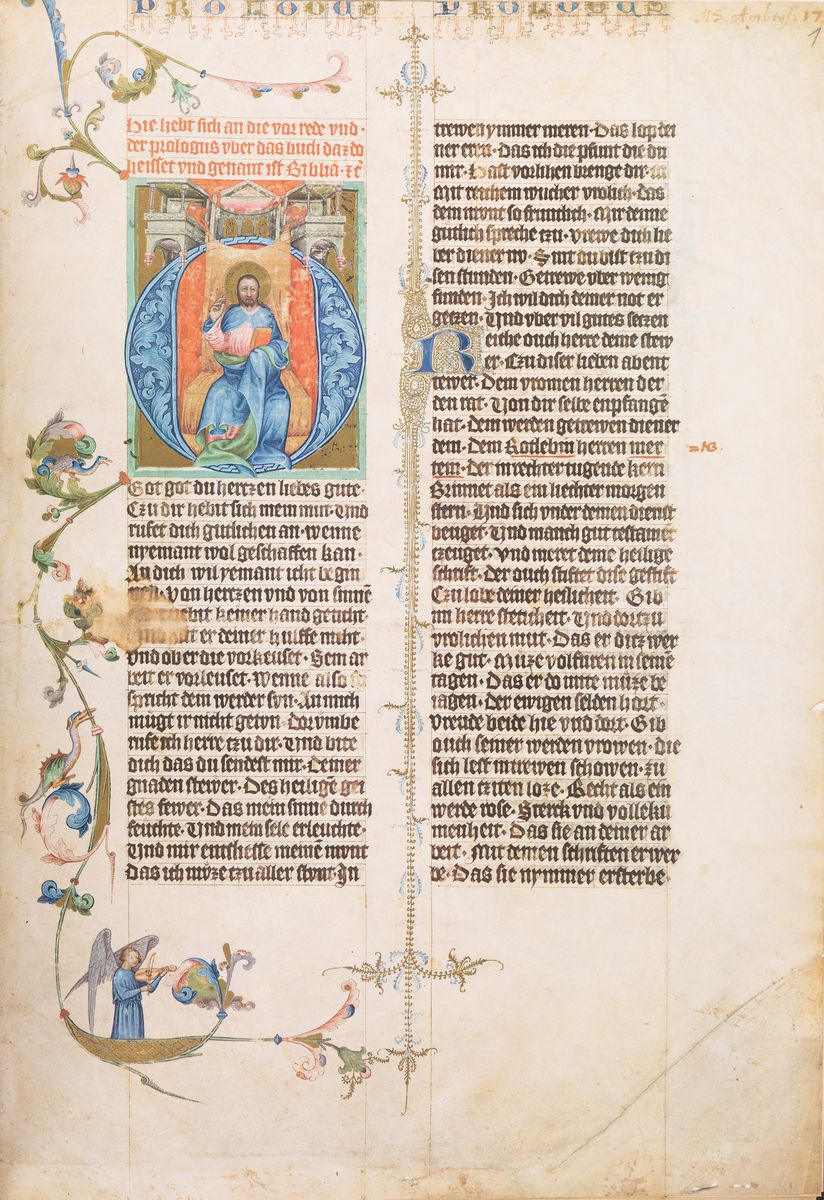 PROLOGUS PROLOGUS
MS. Ambras. 17
1
Hie hebt sich an die vor rede vnd·
der prologus vber das buch daz do
heisset vnd genant ist Biblia · zc̄
Got got du hertzen liebes gute·
Czu dir hebit sich mein mut· Vnd
rufet dich gutlichen an· wenne
nyemant wol geschaffen kan·
An dich wil yemant icht begin
Von hertzen vnd von sinnē
keiner hand geticht·
er deiner hulffe nicht·
vnd ob er die vorkeuset· Sein ar
beit er vorleuset· Wenne also
spricht dein werder syn· An mich
mugt ir nicht getvn· dor vmbe
rufe ich herre tzu dir· Vnd bite
dich das du sendest mir· Deiner
gnaden stewer· Des heiligē gei
stes fewer· Das mein sinne durch
feuchte· Vnd mein sele erleuchte·
Vnd mir entsliesse meinē mvnt
Das ich mvze tzu aller stvnt· In
trewen ymmer meren· Das lop dei
ner eren· Das ich die pfunt die du
mir· Hast vorlihen brenge dir·
Mit reichem wucher vrolich· das
dein mvnt so fruntlich· Mir denne
gutlich spreche tzu· Vrewe dich lie
ber diener nv· Sint du bist tzu di
sen stunden· Getrewe vber wenig
funden· Ich wil dich deiner not er
getzen· Vnd vber vil gutes setzen
Reiche ouch herre deine stew
er· Czu diser lieben abent
tewer· Dem vromen herren der
den rat· Von dir selbe enpfangē
hat· dem werden getrewen diener
dein· Dem Rotlebin herren mer
tein· der in rechter tugende kern
Brinnet als ein liechter morgen
stern· Vnd sich vnder deinen dienst
beuget· Vnd manch gut testament
ertzeuget· vnd meret deine heilige
schrift· der ouch stiftet dise gestift
Czu lobe deiner heslicheit· Gib
im herre steticheit· Vnd dortzu
vrolichen mut· Das er ditz wer
ke gut· Mvze volfuren in seinē
tagen· Das er do mite mvze be
iagen· der ewigen selden hort·
vreude beide hie vnd dort· Gib
ouch seiner werden vrowen· die
sich lest in trewen schowen· zu
allen tziten loze· Recht als ein
werde rose· Sterck vnd volleku
menheit· Das sie an deiner ar
beit· Mit deinen schriften erwer
be· Das sie nymmer ersterbe·
= NB.